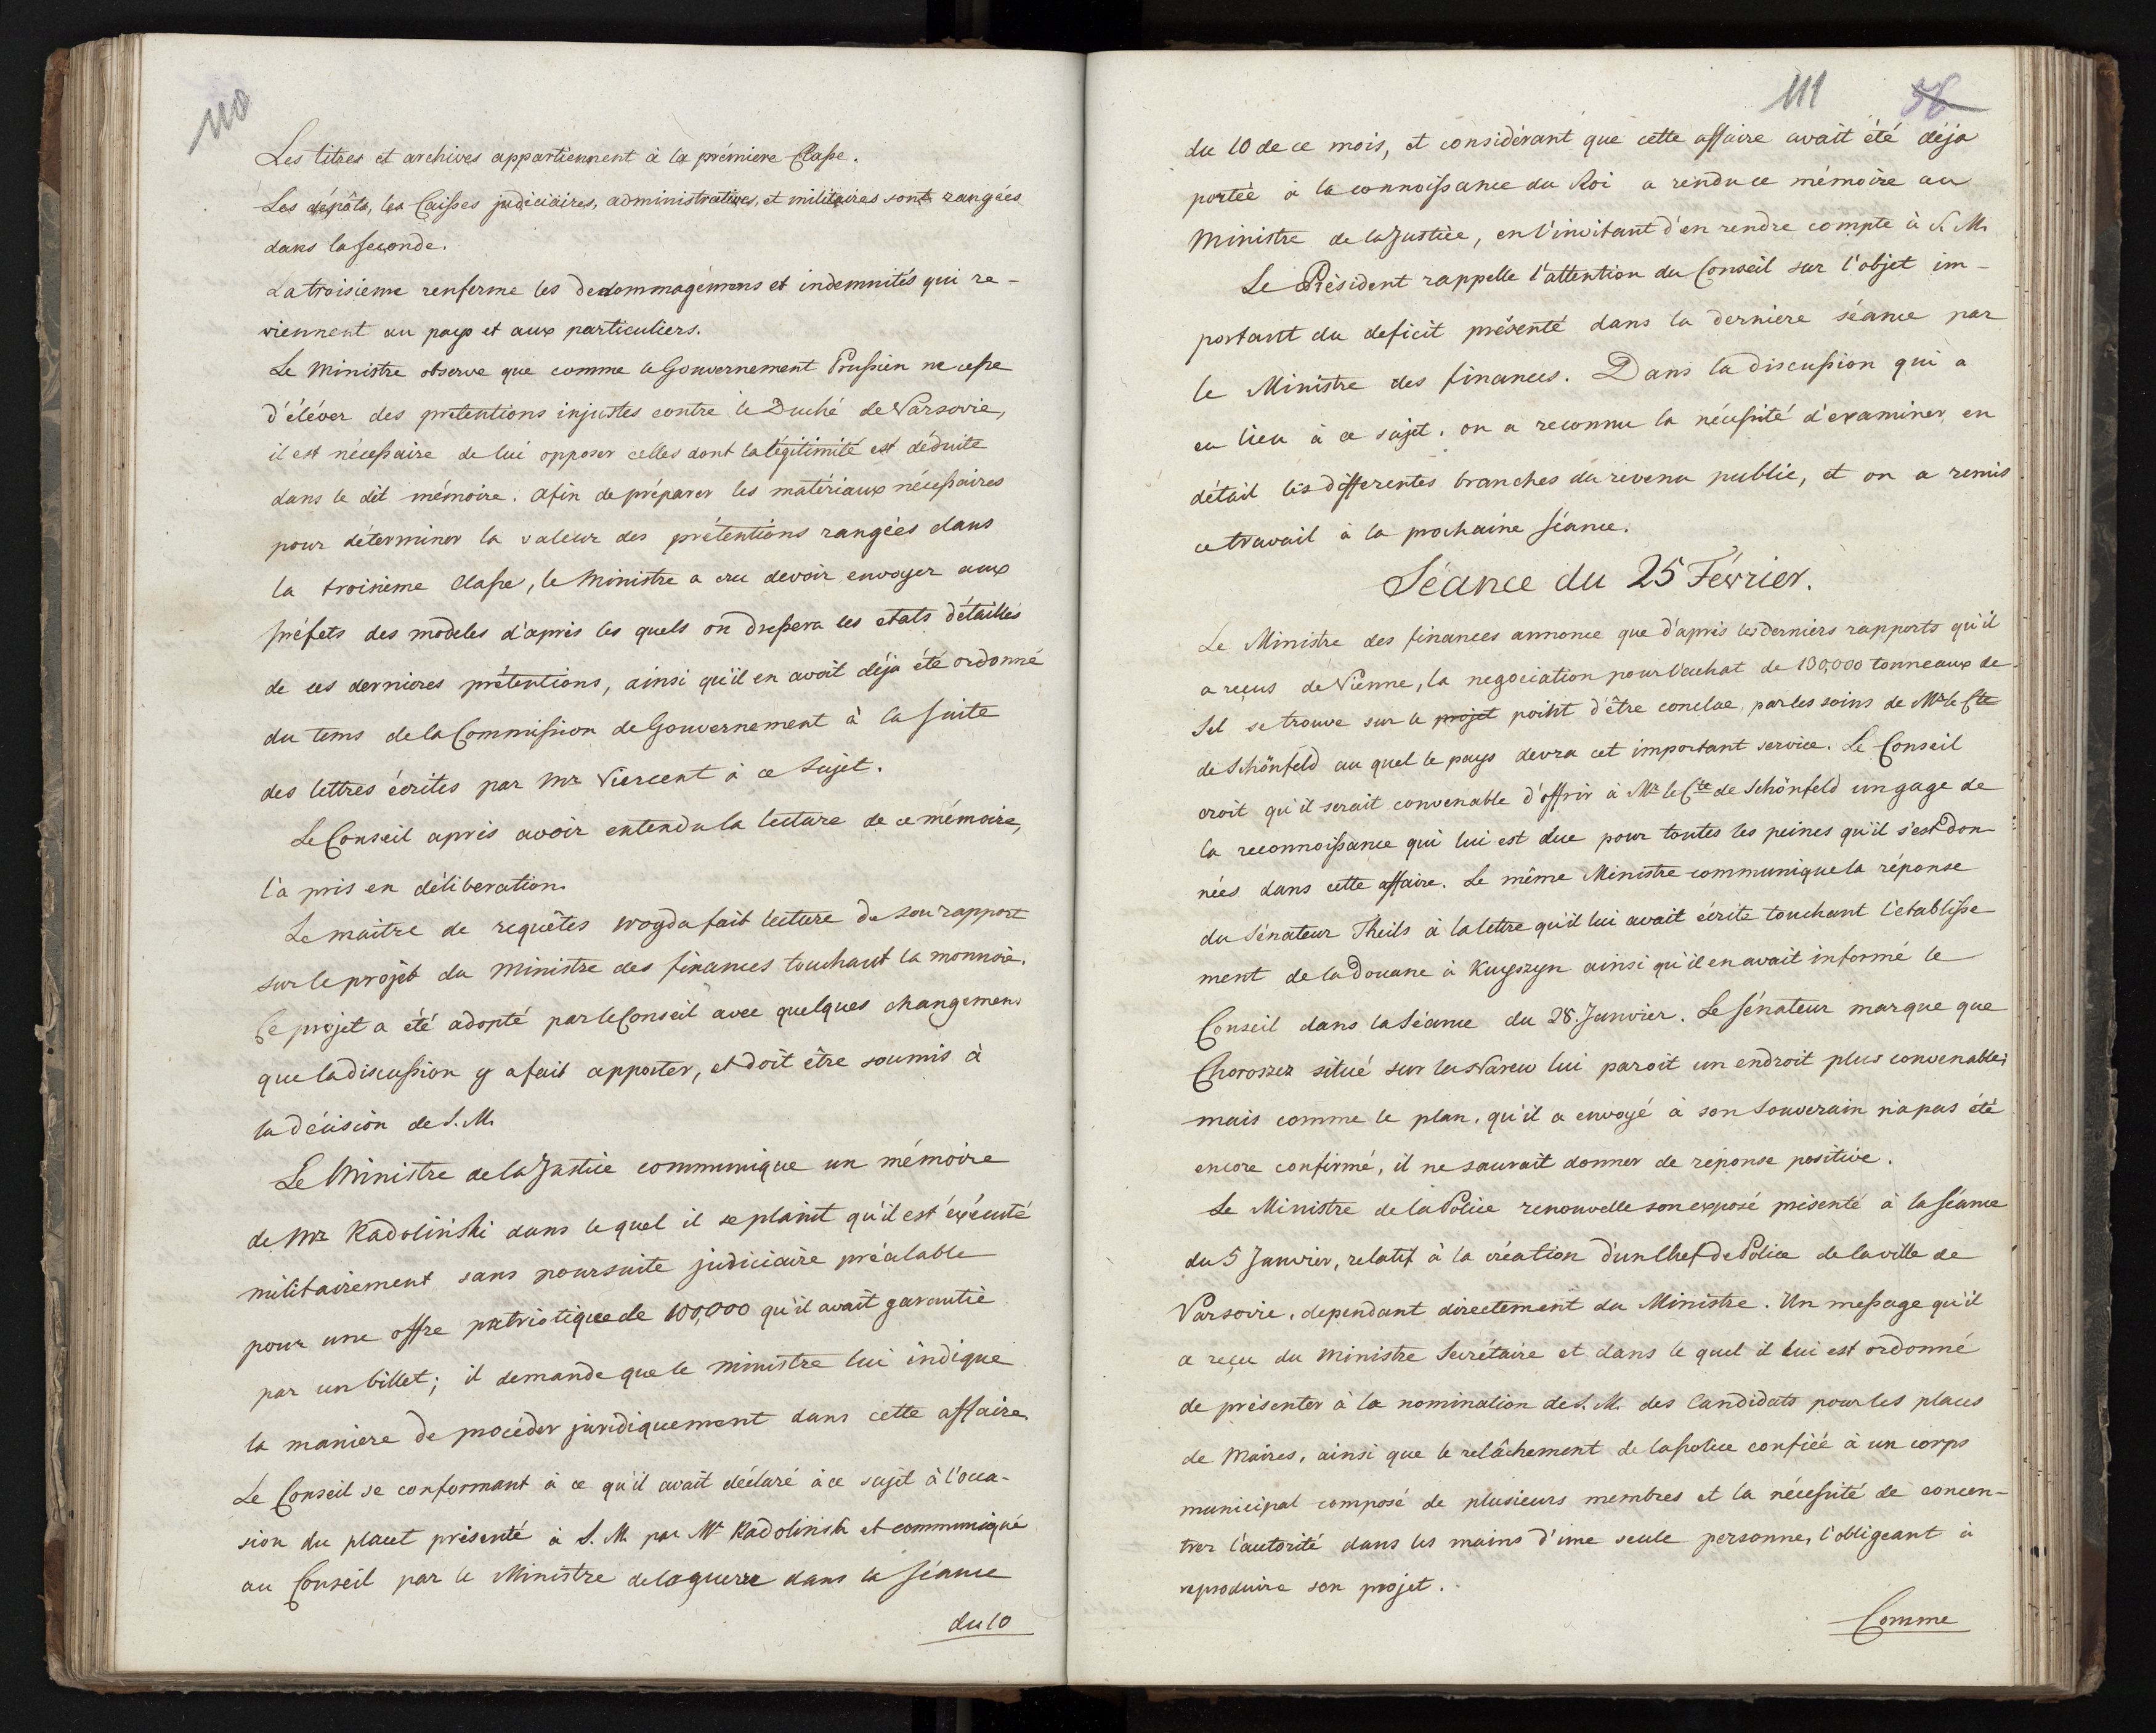 110
Les titres et archives appartiennent à la prémiere Classe.
Les dépâts, les Caisses judiciaires, administratives, et militaires sont rangées
dans la seconde.
La troisieme renferme les dedommagémens et indemnités qui re-
viennent au pays et aux particuliers.
Le Ministre observe que comme le Gouvernement Prussien ne cesse
d'éléver des pretentions injustes contre le Duché de Varsovie,
il est nécessaire de lui opposer celles dont la légitimité est déduite
dans le dit mémoire. Afin de préparer les matériaux nécessaires
pour déterminer la valeur des prétentions rangées dans
la troisième Classe, le Ministre a cru devoir envoyer aux
préfets des modeles d'après les quels on dressera les etats détaillés
de ces dernieres prétentions, ainsi qu'il en avoit déja été ordonné
du tems de la Commission de Gouvernement à la suite
des lettres écrites par Mr Viercent à ce Sujet.
Le Conseil après avoir entendu la lecture de ce mémoire,
l'a pris en déliberation.
Le maitre de requêtes Woyda fait lecture de son rapport
sur le projet du Ministre des finances touchant la monnoie.
Ce projet a été adopté par le Conseil avec quelques changemens
que la discussion y a fait apporter, et doit être soumis à
la décision de S. M.
Le Ministre de la Justice communique un mémoire
de Mr Radoliński dans le quel il se plaint qu'il est éxécuté
militairement sans poursuite judiciaire préalable
pour une offre patriotique de 100,000 qu'il avait garantie
par un billet; il demande que le ministre lui indique
la maniere de procéder juridiquement dans cette affaire.
Le Conseil se conformant à ce qu'il avait déclaré à ce sujet à l'occa-
sion du placet présenté à S. M. par Mr Radoliński et communiqué
au Conseil par le Ministre de la guerre dans la séance
du 10
111
du 10 de ce mois, et considérant que cette affaire avait été déja
portée à la connoissance du Roi a rendu ce mémoire au
Ministre de la Justice, en l'invitant d'en rendre compte à S. M.
Le Président rappelle l'attention du Conseil sur l'objet im-
portant du deficit présenté dans la derniere séance par
le Ministre des finances. Dans la discussion qui a
eu lieu à ce sujet. on a reconnu la nécessité d'examiner en
détail les differentes branches du revenu public, et on a remis
ce travail à la prochaine séance.
Séance du 25 Février.
Le Ministre des finances annonce que d'après les derniers rapports qu'il
a reçus de Vienne, la negociation pour l'achat de 130,000 tonneaux de
Sel se trouve sur le projet point d'être conclue, par les soins de Mr le Cte
de Schönfeld au quel le pays devra cet important service. Le Conseil
croit qu'il serait convenable d'offrir à Mr le Cte de Schönfeld un gage de
la reconnoissance qui lui est due pour toutes les peines qu'il s'est don-
nées dans cette affaire. Le même Ministre communique la réponse
du Sénateur Theils à la lettre qu'il lui avait écrite touchant l'etablisse
ment de la Douane à Knyszyn ainsi qu'il en avait informé le
Conseil dans la Séance du 28. Janvier. Le sénateur marque que
Choroszcz situé sur la Narew lui paroit un endroit plus convenable;
mais comme le plan, qu'il a envoyé à son Souverain n'a pas été
encore confirmé, il ne saurait donner de réponse positive.
Le Ministre de la Police renouvelle son exposé présenté à la séance
du 5 Janvier, relatif à la création d'un Chef de Police de la ville de
Varsovie, dependant directement du Ministre. Un message qu'il
a reçu du Ministre Secrétaire et dans le quel il lui est ordonné
de présenter à la nomination de S. M. des Candidats pour les places
de Maires, ainsi que le relâchement de la police confiée à un corps
municipal composé de plusieurs membres et la nécessité de concen-
trer l'autorité dans les mains d'une seule personne, l'obligeant à
reproduire son projet.
Comme